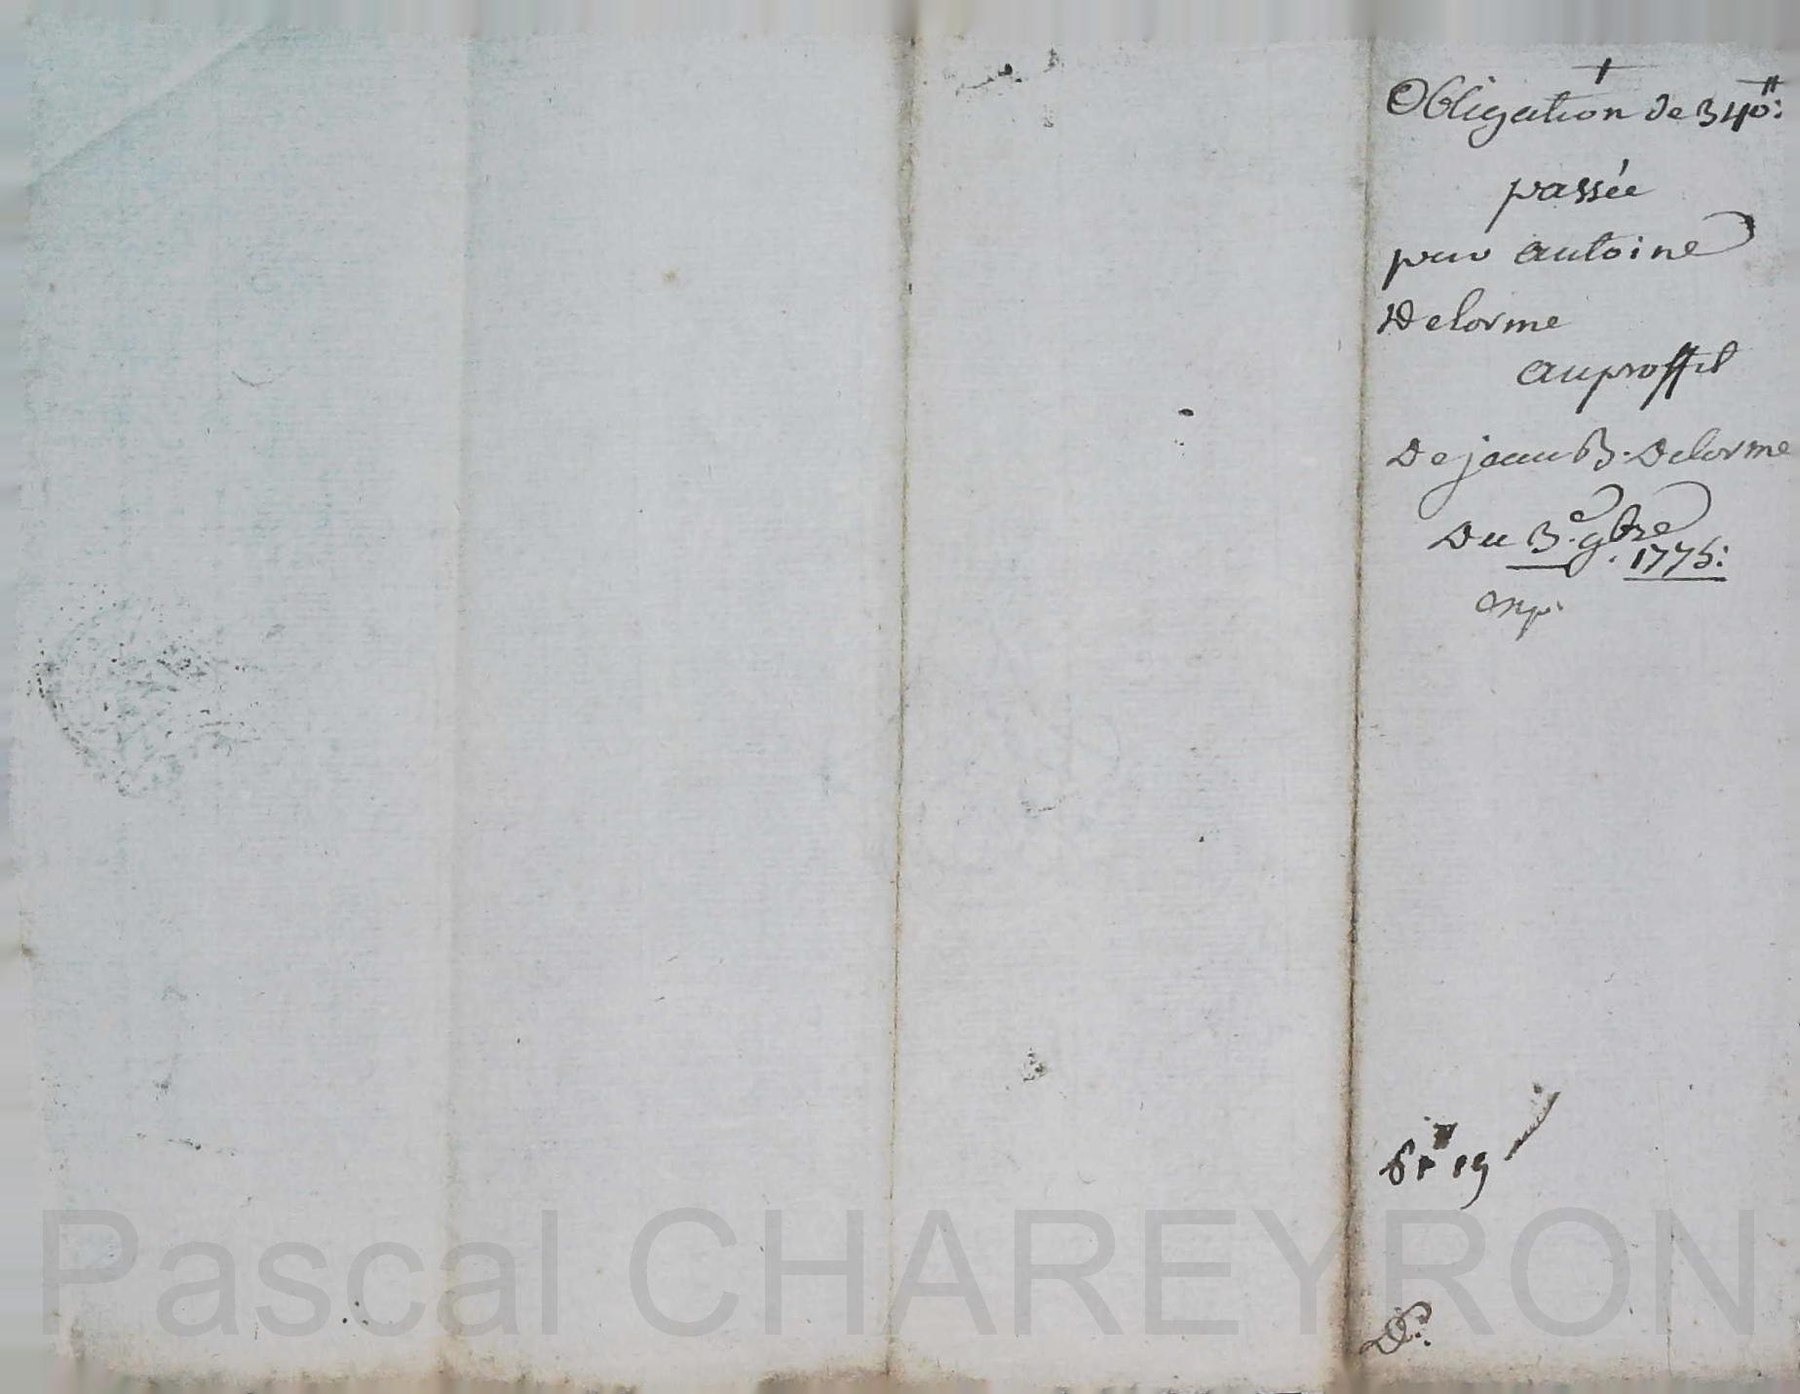 Obligation de 340:
passée
par antoine
Delorme
au proffit
De jean B. Delorme
Du 3.e 9bre
1775:
Exp.
Pascal CHAREYRON